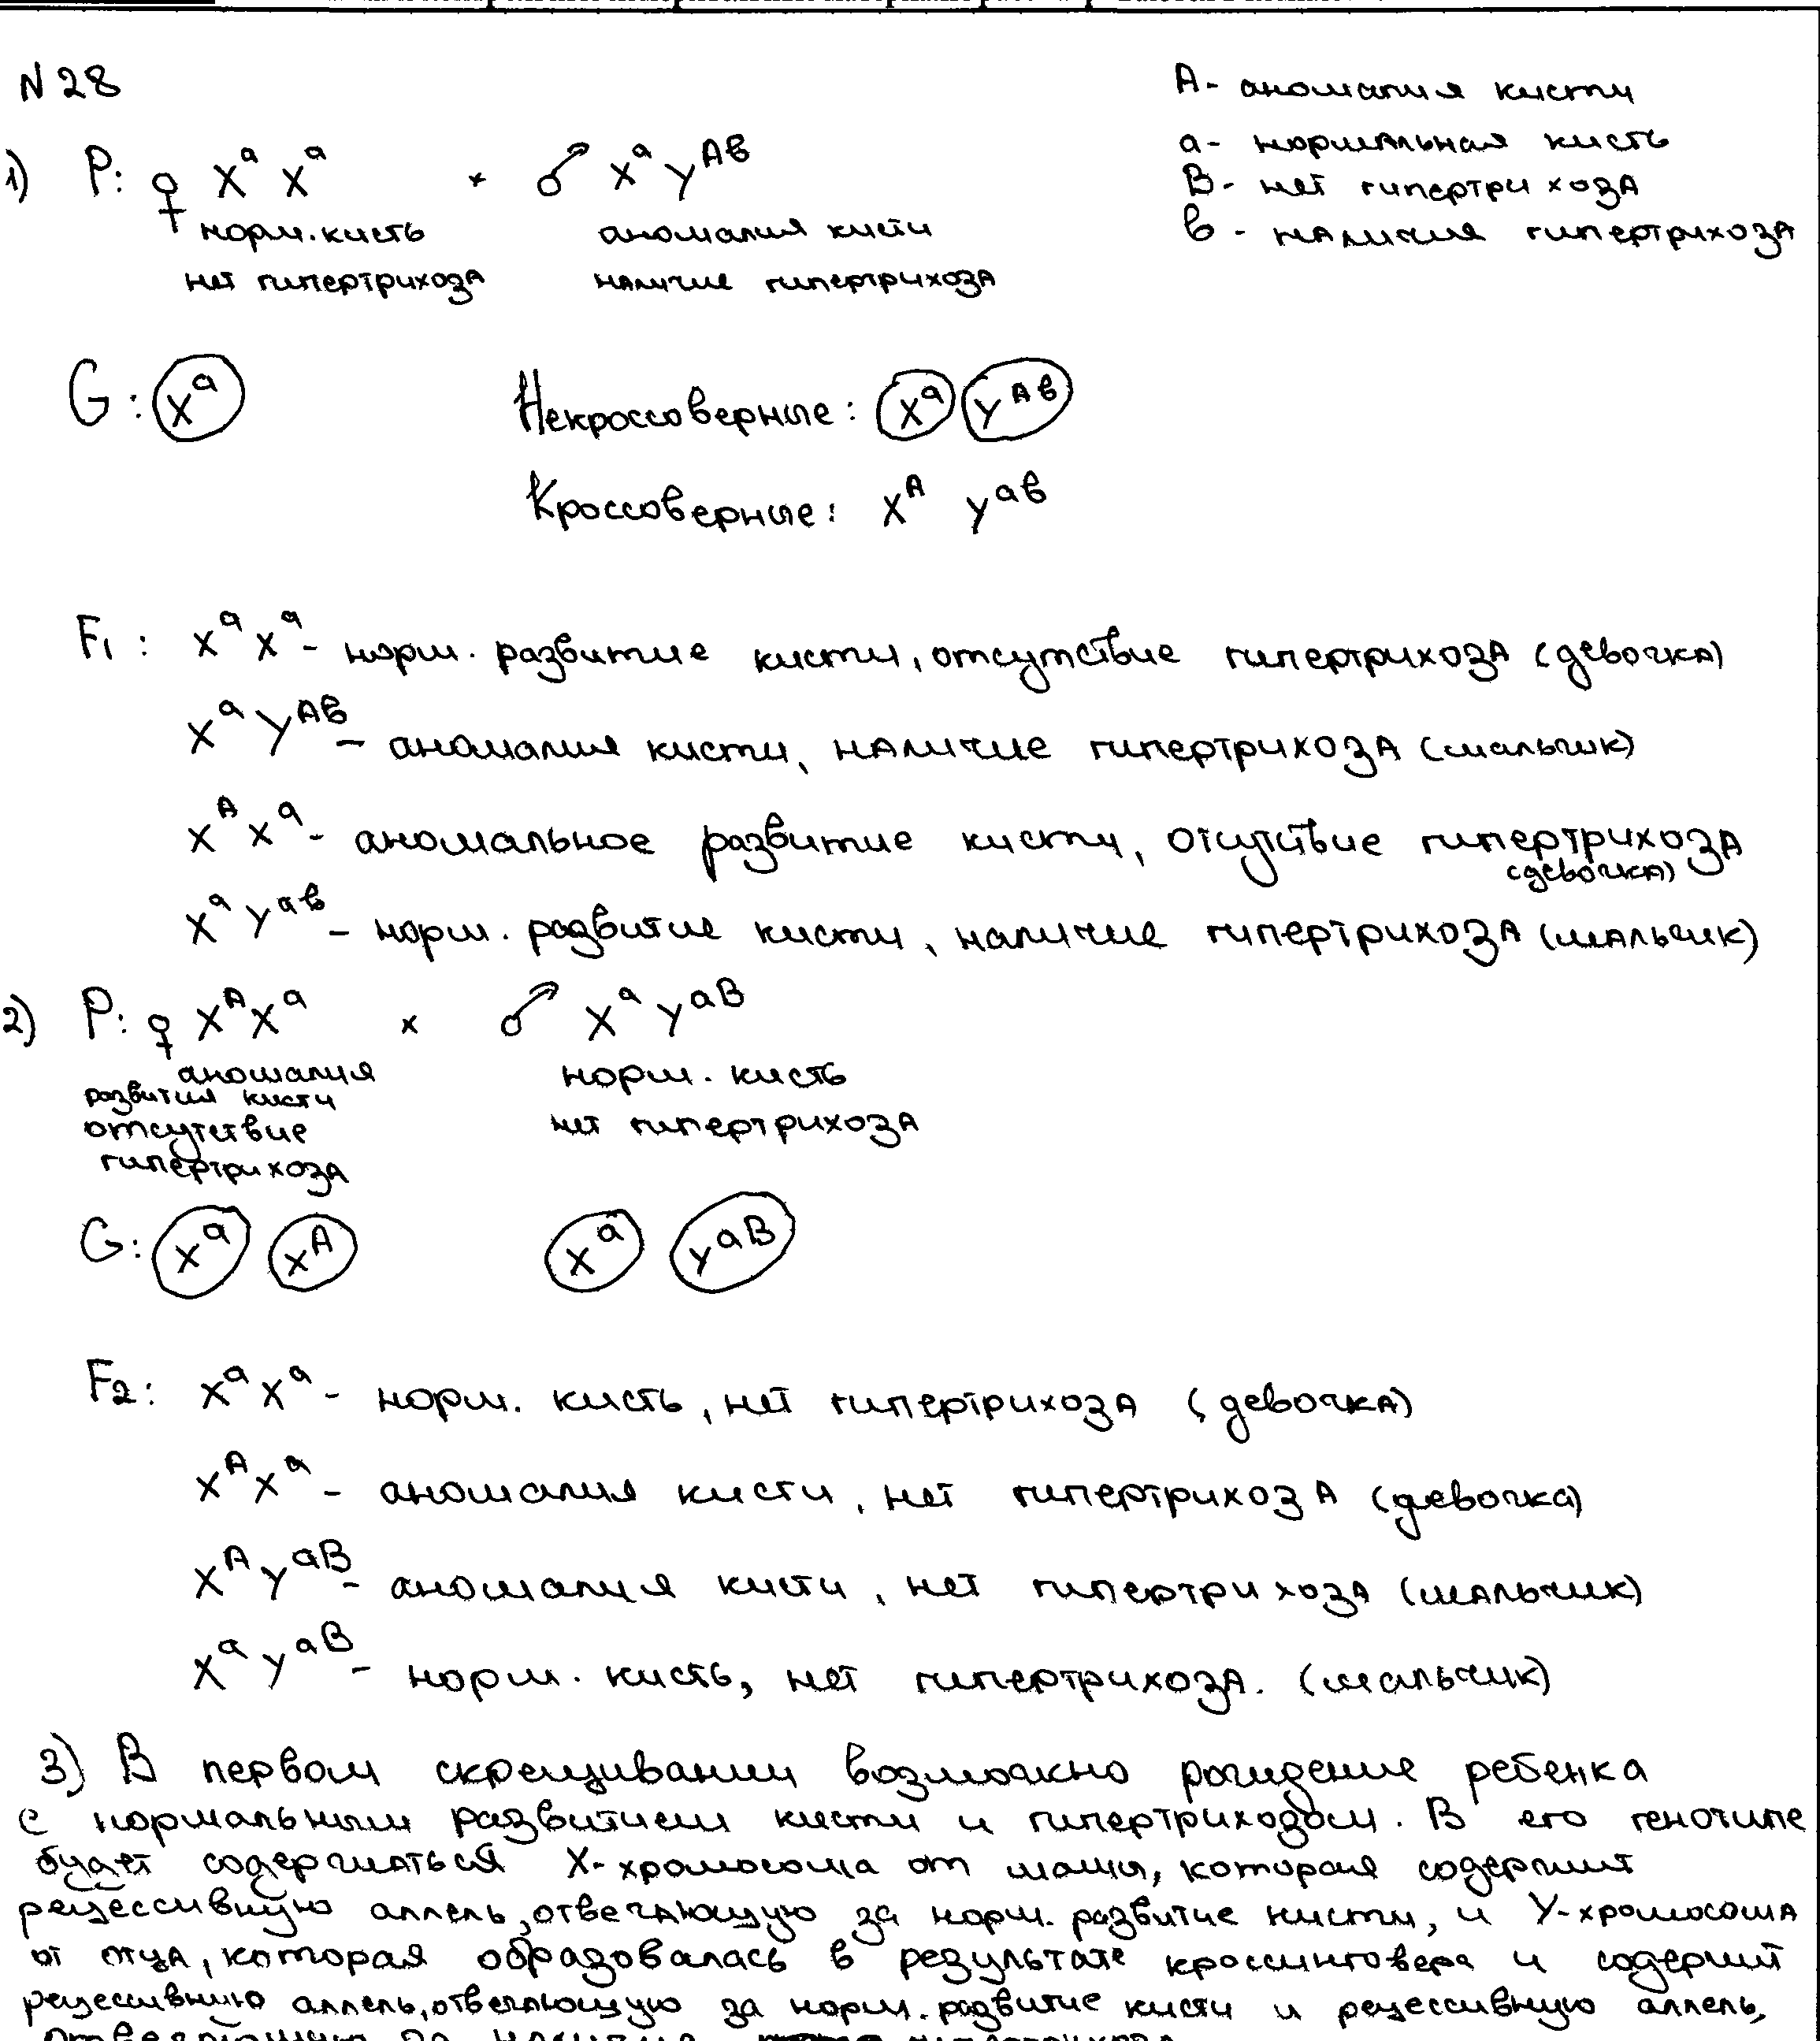 N 28
A - аномалия кисти
a - нормальная кисть
B - нет гипертрихоза
b - наличия гипертрихоза
1) P: ♀ X^a X^a × ♂ X^a Y^Ab
норм. кисть аномалия кисти
нет гипертрихоза наличие гипертрихоза
G: X^a Некроссоверные: X^a Y^Ab
Кроссоверные: X^A Y^ab
F1: X^a X^a - норм. развитие кисти, отсутствие гипертрихоза (девочка)
X^a Y^Ab - аномалия кисти, наличие гипертрихоза (мальчик)
X^A X^a - аномальное развитие кисти, отсутствие гипертрихоза
(девочка)
X^a Y^ab - норм. развитие кисти, наличие гипертрихоза (мальчик)
2) P: ♀ X^A X^a × ♂ X^a Y^aB
аномалия норм. кисть
развития кисти
отсутствие нет гипертрихоза
гипертрихоза
G: X^a X^A X^a Y^aB
F2: X^a X^a - норм. кисть, нет гипертрихоза (девочка)
X^A X^a - аномалия кисти, нет гипертрихоза (девочка)
X^A Y^aB - аномалия кисти, нет гипертрихоза (мальчик)
X^a Y^aB - норм. кисть, нет гипертрихоза. (мальчик)
3) В первом скрещивании возможно рождение ребенка
с нормальным развитием кисти и гипертриходом. В его генотипе
будет содержаться X-хромосома от мамы, которая содержит
рецессивную аллель, отвечающую за норм. развитие кисти, и Y-хромосома
от отца, которая образовалась в результате кроссинговера и содержит
рецессивную аллель, отвечающую за норм. развитие кисти и рецессивную аллель,